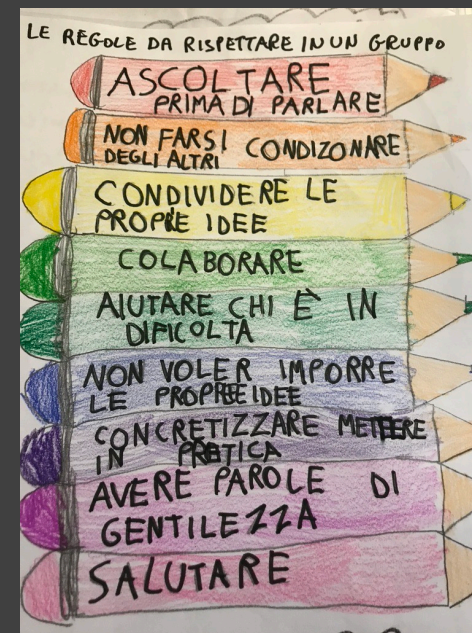 LE REGOLE DA RISPETTARE IN UN GRUPPO
ASCOLTARE
PRIMA DI PARLARE
NON FARSI CONDIZONARE
DEGLI ALTRI
CONDIVIDERE LE
PROPRIE IDEE
COLABORARE
AIUTARE CHI È IN
DIFICOLTA
NON VOLER IMPORRE
LE PROPREE IDEE
CONCRETIZZARE METTERE
IN PRATICA
AVERE PAROLE DI
GENTILEZZA
SALUTARE